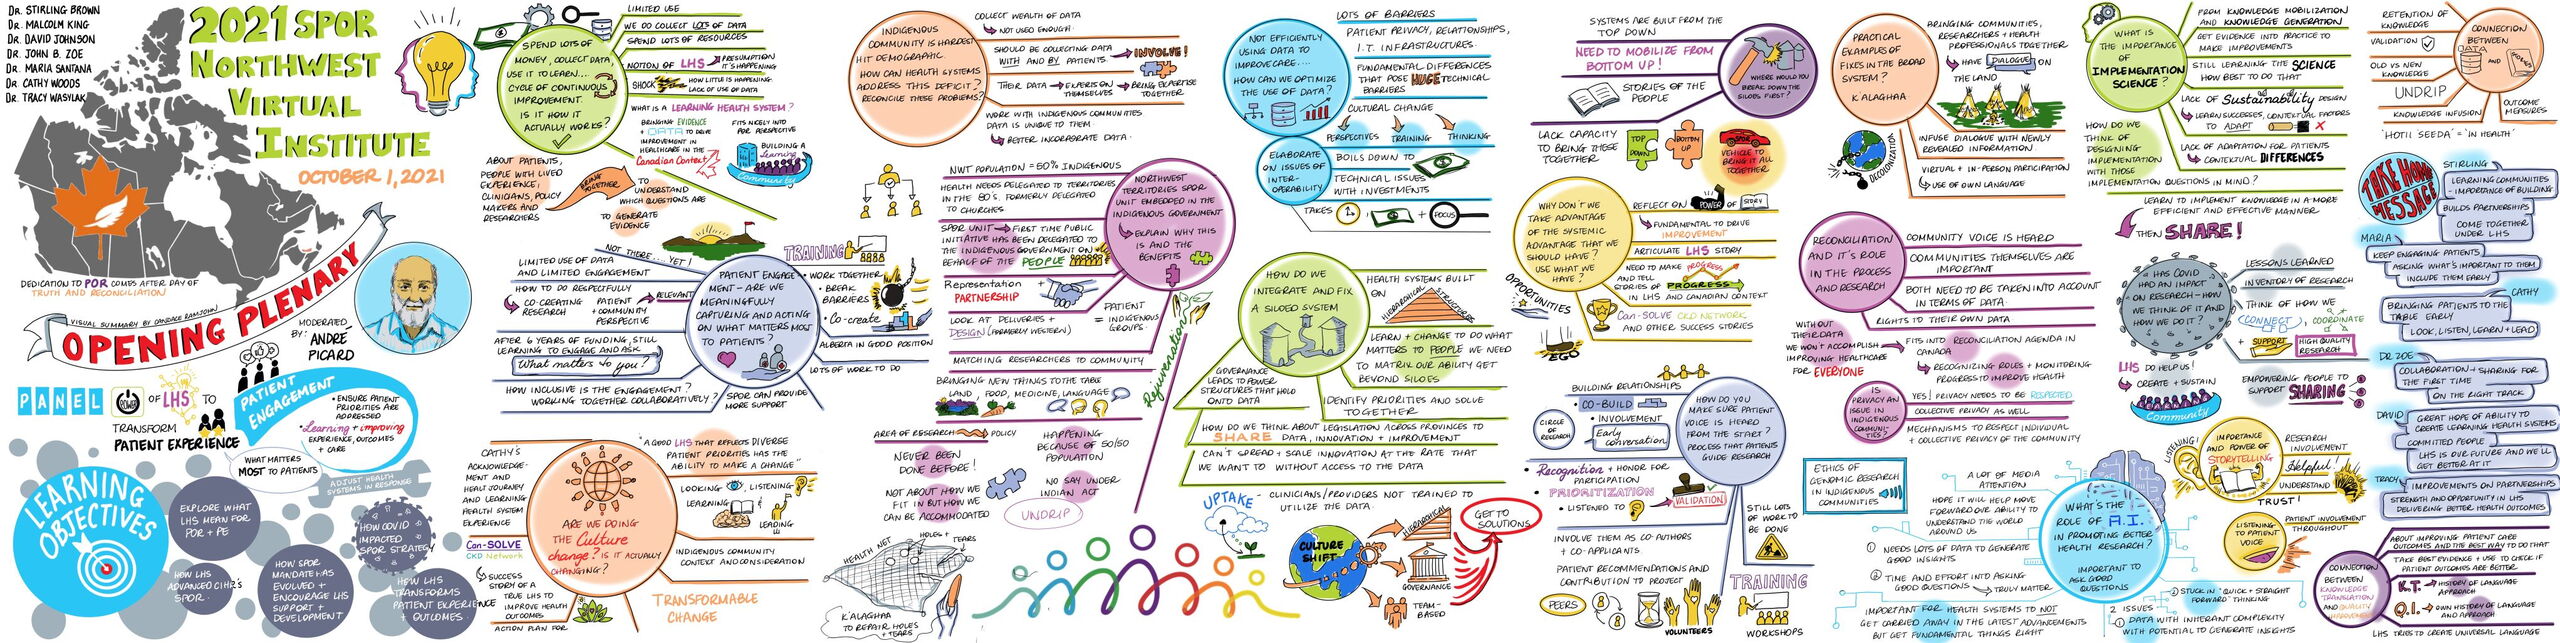 DR. STIRLING BROWN
DR. MALCOLM KING
DR. DAVID JOHNSON
DR. JOHN B. ZOE
DR. MARIA SANTANA
DR. CATHY WOODS
DR. TRACY WASYLAK
2021 SPOR
NORTHWEST
VIRTUAL
INSTITUTE
OCTOBER 1, 2021
DEDICATION TO POR COMES AFTER DAY OF
TRUTH AND RECONCILIATION
VISUAL SUMMARY BY CANDACE RAMJOHN
OPENING PLENARY
MODERATED
BY: ANDRÉ
PICARD
PANEL
POWER
OF LHS TO
TRANSFORM
PATIENT EXPERIENCE
PATIENT
ENGAGEMENT
• ENSURE PATIENT
PRIORITIES ARE
ADDRESSED
• Learning + improving
EXPERIENCE, OUTCOMES
+ CARE
WHAT MATTERS
MOST TO PATIENTS
ADJUST HEALTH
SYSTEMS IN RESPONSE
LEARNING
OBJECTIVES
EXPLORE WHAT
LHS MEAN FOR
POR + PE
HOW LHS
ADVANCED CIHR'S
SPOR
HOW SPOR
MANDATE HAS
EVOLVED +
ENCOURAGE LHS
SUPPORT +
DEVELOPMENT
HOW COVID
IMPACTED
SPOR STRATEGY
HOW LHS
TRANSFORMS
PATIENT EXPERIENCE
+ OUTCOMES
SPEND LOTS OF
MONEY, COLLECT DATA,
USE IT TO LEARN...
CYCLE OF CONTINUOUS
IMPROVEMENT.
IS IT HOW IT
ACTUALLY WORKS?
LIMITED USE
WE DO COLLECT LOTS OF DATA
SPEND LOTS OF RESOURCES
NOTION OF LHS → PRESUMPTION
IT'S HAPPENING
SHOCK HOW LITTLE IS HAPPENING.
LACK OF USE OF DATA
WHAT IS A LEARNING HEALTH SYSTEM?
BRINGING EVIDENCE
+ DATA TO DRIVE
IMPROVEMENT IN
HEALTHCARE IN THE
Canadian Context
FITS NICELY INTO
POR PERSPECTIVE
BUILDING A
Learning
Community
ABOUT PATIENTS,
PEOPLE WITH LIVED
EXPERIENCE,
CLINICIANS, POLICY
MAKERS AND
RESEARCHERS
BRING
TOGETHER
TO
UNDERSTAND
WHICH QUESTIONS ARE
TO GENERATE
EVIDENCE
NOT THERE... YET!
PATIENT ENGAGE-
MENT - ARE WE
MEANINGFULLY
CAPTURING AND ACTING
ON WHAT MATTERS MOST
TO PATIENTS?
LIMITED USE OF DATA
AND LIMITED ENGAGEMENT
HOW TO DO RESPECTFULLY
CO-CREATING
RESEARCH
PATIENT
+ COMMUNITY
PERSPECTIVE
RELEVANT
AFTER 6 YEARS OF FUNDING, STILL
LEARNING TO ENGAGE AND ASK
What matters to you?
HOW INCLUSIVE IS THE ENGAGEMENT?
WORKING TOGETHER COLLABORATIVELY?
TRAINING
• WORK TOGETHER
• BREAK
BARRIERS
• Co-create
ALBERTA IN GOOD POSITION
LOTS OF WORK TO DO
SPOR CAN PROVIDE
MORE SUPPORT
CATHY'S
ACKNOWLEDGE-
MENT AND
HEALTH JOURNEY
AND LEARNING
HEALTH SYSTEM
EXPERIENCE
Can-SOLVE
CKD Network
SUCCESS
STORY OF A
TRUE LHS TO
IMPROVE HEALTH
OUTCOMES
ACTION PLAN FOR
ARE WE DOING
THE Culture
change? IS IT ACTUALLY
CHANGING?
"A GOOD LHS THAT REFLECTS DIVERSE
PATIENT PRIORITIES HAS THE
ABILITY TO MAKE A CHANGE"
LOOKING
LISTENING
LEARNING
LEADING
INDIGENOUS COMMUNITY
CONTEXT AND CONSIDERATION
TRANSFORMABLE
CHANGE
INDIGENOUS
COMMUNITY IS HARDEST
HIT DEMOGRAPHIC.
HOW CAN HEALTH SYSTEMS
ADDRESS THIS DEFICIT?
RECONCILE THESE PROBLEMS?
COLLECT WEALTH OF DATA
NOT USED ENOUGH
SHOULD BE COLLECTING DATA
WITH AND BY PATIENTS.
INVOLVE!
THEIR DATA → EXPERTS ON
THEMSELVES → BRING EXPERTISE
TOGETHER
WORK WITH INDIGENOUS COMMUNITIES
DATA IS UNIQUE TO THEM
BETTER INCORPORATE DATA
NWT POPULATION = 50% INDIGENOUS
HEALTH NEEDS DELEGATED TO TERRITORIES
IN THE 80'S. FORMERLY DELEGATED
TO CHURCHES.
SPOR UNIT → FIRST TIME PUBLIC
INITIATIVE HAS BEEN DELEGATED TO
THE INDIGENOUS GOVERNMENT ON
BEHALF OF THE PEOPLE
Representation
PARTNERSHIP
LOOK AT DELIVERIES +
DESIGN (FORMERLY WESTERN)
= PATIENT
INDIGENOUS
GROUPS.
MATCHING RESEARCHERS TO COMMUNITY
BRINGING NEW THINGS TO THE TABLE
LAND, FOOD, MEDICINE, LANGUAGE
NORTHWEST
TERRITORIES SPOR
UNIT EMBEDDED IN THE
INDIGENOUS GOVERNMENT
EXPLAIN WHY THIS
IS AND THE
BENEFITS
Rejuvenation
AREA OF RESEARCH → POLICY
NEVER BEEN
DONE BEFORE!
NOT ABOUT HOW WE
FIT IN BUT HOW WE
CAN BE ACCOMMODATED
HAPPENING
BECAUSE OF 50/50
POPULATION
NO SAY UNDER
INDIAN ACT
UNDRIP
HEALTH NET
HOLES + TEARS
K'ALAGHAA
TO REPAIR HOLES
+ TEARS
NOT EFFICIENTLY
USING DATA TO
IMPROVE CARE....
HOW CAN WE OPTIMIZE
THE USE OF DATA?
LOTS OF BARRIERS
PATIENT PRIVACY, RELATIONSHIPS,
I.T. INFRASTRUCTURES.
FUNDAMENTAL DIFFERENCES
THAT POSE HUGE TECHNICAL
BARRIERS
CULTURAL CHANGE
PERSPECTIVES TRAINING THINKING
ELABORATE
ON ISSUES OF
INTER-
OPERABILITY
BOILS DOWN TO
TECHNICAL ISSUES
WITH INVESTMENTS
TAKES + + FOCUS
HOW DO WE
INTEGRATE AND FIX
A SILOED SYSTEM
HEALTH SYSTEMS BUILT
ON HIERARCHICAL STRUCTURES
LEARN + CHANGE TO DO WHAT
MATTERS TO PEOPLE WE NEED
TO MATRIX OUR ABILITY GET
BEYOND SILOES
GOVERNANCE
LEADS TO POWER
STRUCTURES THAT HOLD
ONTO DATA
IDENTIFY PRIORITIES AND SOLVE
TOGETHER
HOW DO WE THINK ABOUT LEGISLATION ACROSS PROVINCES TO
SHARE DATA, INNOVATION + IMPROVEMENT
CAN'T SPREAD + SCALE INNOVATION AT THE RATE THAT
WE WANT TO WITHOUT ACCESS TO THE DATA
UPTAKE - CLINICIANS/PROVIDERS NOT TRAINED TO
UTILIZE THE DATA.
CULTURE
SHIFT
HIERARCHICAL
GOVERNANCE
TEAM-
BASED
GET TO
SOLUTIONS
SYSTEMS ARE BUILT FROM THE
TOP DOWN
NEED TO MOBILIZE FROM
BOTTOM UP!
STORIES OF THE
PEOPLE
WHERE WOULD YOU
BREAK DOWN THE
SILOES FIRST?
LACK CAPACITY
TO BRING THESE
TOGETHER
TOP
DOWN
BOTTOM
UP
SPOR
VEHICLE TO
BRING IT ALL
TOGETHER
WHY DON'T WE
TAKE ADVANTAGE
OF THE SYSTEMIC
ADVANTAGE THAT WE
SHOULD HAVE?
USE WHAT WE
HAVE?
OPPORTUNITIES
EGO
REFLECT ON POWER OF STORY
FUNDAMENTAL TO DRIVE
IMPROVEMENT
ARTICULATE LHS STORY
NEED TO MAKE PROGRESS
AND TELL
STORIES OF PROGRESS
IN LHS AND CANADIAN CONTEXT
Can-SOLVE CKD NETWORK
AND OTHER SUCCESS STORIES
BUILDING RELATIONSHIPS
• CO-BUILD
• INVOLVEMENT
Early
conversation
CIRCLE
OF
RESEARCH
• Recognition + HONOR FOR
PARTICIPATION
• PRIORITIZATION
• LISTENED TO
VALIDATION
HOW DO YOU
MAKE SURE PATIENT
VOICE IS HEARD
FROM THE START?
PROCESS THAT PATIENTS
GUIDE RESEARCH
INVOLVE THEM AS CO-AUTHORS
+ CO-APPLICANTS.
PATIENT RECOMMENDATIONS AND
CONTRIBUTION TO PROJECT
PEERS
VOLUNTEERS
STILL LOTS
OF WORK TO
BE DONE
TRAINING
WORKSHOPS
PRACTICAL
EXAMPLES OF
FIXES IN THE BROAD
SYSTEM?
K'ALAGHAA
BRINGING COMMUNITIES,
RESEARCHERS + HEALTH
PROFESSIONALS TOGETHER
HAVE DIALOGUE ON
THE LAND
INFUSE DIALOGUE WITH NEWLY
REVEALED INFORMATION
VIRTUAL + IN-PERSON PARTICIPATION
USE OF OWN LANGUAGE
DECOLONIZATION
RECONCILIATION
AND IT'S ROLE
IN THE PROCESS
AND RESEARCH
COMMUNITY VOICE IS HEARD
COMMUNITIES THEMSELVES ARE
IMPORTANT
BOTH NEED TO BE TAKEN INTO ACCOUNT
IN TERMS OF DATA.
RIGHTS TO THEIR OWN DATA
WITHOUT
THEIR DATA
WE WON'T ACCOMPLISH
IMPROVING HEALTHCARE
FOR EVERYONE
FITS INTO RECONCILIATION AGENDA IN
CANADA
RECOGNIZING ROLES + MONITORING
PROGRESS TO IMPROVE HEALTH
IS
PRIVACY AN
ISSUE IN
INDIGENOUS
COMMUNI-
TIES?
YES! PRIVACY NEEDS TO BE RESPECTED
COLLECTIVE PRIVACY AS WELL
MECHANISMS TO RESPECT INDIVIDUAL
+ COLLECTIVE PRIVACY OF THE COMMUNITY
ETHICS OF
GENOMIC RESEARCH
IN INDIGENOUS
COMMUNITIES
A LOT OF MEDIA
ATTENTION
HOPE IT WILL HELP MOVE
FORWARD OUR ABILITY TO
UNDERSTAND THE WORLD
AROUND US
① NEEDS LOTS OF DATA TO GENERATE
GOOD INSIGHTS
② TIME AND EFFORT INTO ASKING
GOOD QUESTIONS → TRULY MATTER
IMPORTANT FOR HEALTH SYSTEMS TO NOT
GET CARRIED AWAY IN THE LATEST ADVANCEMENTS
BUT GET FUNDAMENTAL THINGS RIGHT
WHAT'S THE
ROLE OF A.I.
IN PROMOTING BETTER
HEALTH RESEARCH?
IMPORTANT TO
ASK GOOD
QUESTIONS
② STUCK IN "QUICK + STRAIGHT
FORWARD" THINKING
2 ISSUES
① DATA WITH INHERANT COMPLEXITY
WITH POTENTIAL TO GENERATE INSIGHTS
WHAT IS
THE IMPORTANCE
OF
IMPLEMENTATION
SCIENCE?
FROM KNOWLEDGE MOBILIZATION
AND KNOWLEDGE GENERATION
GET EVIDENCE INTO PRACTICE TO
MAKE IMPROVEMENTS
STILL LEARNING THE SCIENCE
HOW BEST TO DO THAT
LACK OF Sustainability DESIGN
LEARN SUCCESSES, CONTEXTUAL FACTORS
TO ADAPT
LACK OF ADAPTATION FOR PATIENTS
CONTEXTUAL DIFFERENCES
HOW DO WE
THINK OF
DESIGNING
IMPLEMENTATION
WITH THOSE
IMPLEMENTATION QUESTIONS IN MIND?
LEARN TO IMPLEMENT KNOWLEDGE IN A MORE
EFFICIENT AND EFFECTIVE MANNER
THEN SHARE!
HAS COVID
HAD AN IMPACT
ON RESEARCH - HOW
WE THINK OF IT AND
HOW WE DO IT?
LESSONS LEARNED
INVENTORY OF RESEARCH
THINK OF HOW WE
CONNECT, COORDINATE
+ SUPPORT HIGH QUALITY
RESEARCH
LHS DO HELP US!
CREATE + SUSTAIN
Community
EMPOWERING PEOPLE TO
SUPPORT SHARING
LISTENING!
IMPORTANCE AND
POWER OF
STORYTELLING
RESEARCH
INVOLVEMENT
Helpful!
UNDERSTAND
TRUST!
LISTENING
TO PATIENT
VOICE
PATIENT INVOLVEMENT
THROUGHOUT
RETENTION OF
KNOWLEDGE
VALIDATION
OLD VS NEW
KNOWLEDGE
UNDRIP
KNOWLEDGE INFUSION
CONNECTION
BETWEEN
DATA
AND
OUTCOME
MEASURES
'HOTI SEEDA' = 'IN HEALTH'
TAKE HOME
MESSAGE
STIRLING
LEARNING COMMUNITIES
- IMPORTANCE OF BUILDING
BUILDS PARTNERSHIPS
COME TOGETHER
UNDER LHS
MARIA
KEEP ENGAGING PATIENTS
ASKING WHAT'S IMPORTANT TO THEM
INCLUDE THEM EARLY
CATHY
BRINGING PATIENTS TO THE
TABLE EARLY
LOOK, LISTEN, LEARN + LEAD
DR ZOE
COLLABORATION + SHARING FOR
THE FIRST TIME
ON THE RIGHT TRACK
DAVID
GREAT HOPE OF ABILITY TO
CREATE LEARNING HEALTH SYSTEMS
COMMITTED PEOPLE
LHS IS OUR FUTURE AND WE'LL
GET BETTER AT IT
TRACY
IMPROVEMENTS ON PARTNERSHIPS
STRENGTH AND OPPORTUNITY IN LHS
DELIVERING BETTER HEALTH OUTCOMES
CONNECTION
BETWEEN
KNOWLEDGE
TRANSLATION
AND QUALITY
IMPROVEMENT
ABOUT IMPROVING PATIENT CARE
OUTCOMES AND THE BEST WAY TO DO THAT
TAKE BEST EVIDENCE + USE TO CHECK IF
PATIENT OUTCOMES ARE BETTER
K.T. → HISTORY OF LANGUAGE
APPROACH
Q.I. → OWN HISTORY OF LANGUAGE
AND APPROACH
LHS TRIES TO CREATE UNIVERSAL LANGUAGE